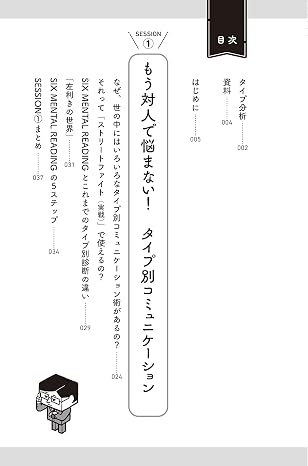 目次
タイプ分析 002
資料 004
はじめに 005
SESSION
1
もう対人で悩まない! タイプ別コミュニケーション
なぜ、世の中にはいろいろなタイプ別コミュニケーション術があるの? 024
それって「ストリートファイト(実戦)」で使えるの?
SIX MENTAL READINGとこれまでのタイプ別診断の違い 029
「左利きの世界」 031
SIX MENTAL READINGの5ステップ 034
SESSION①まとめ 037